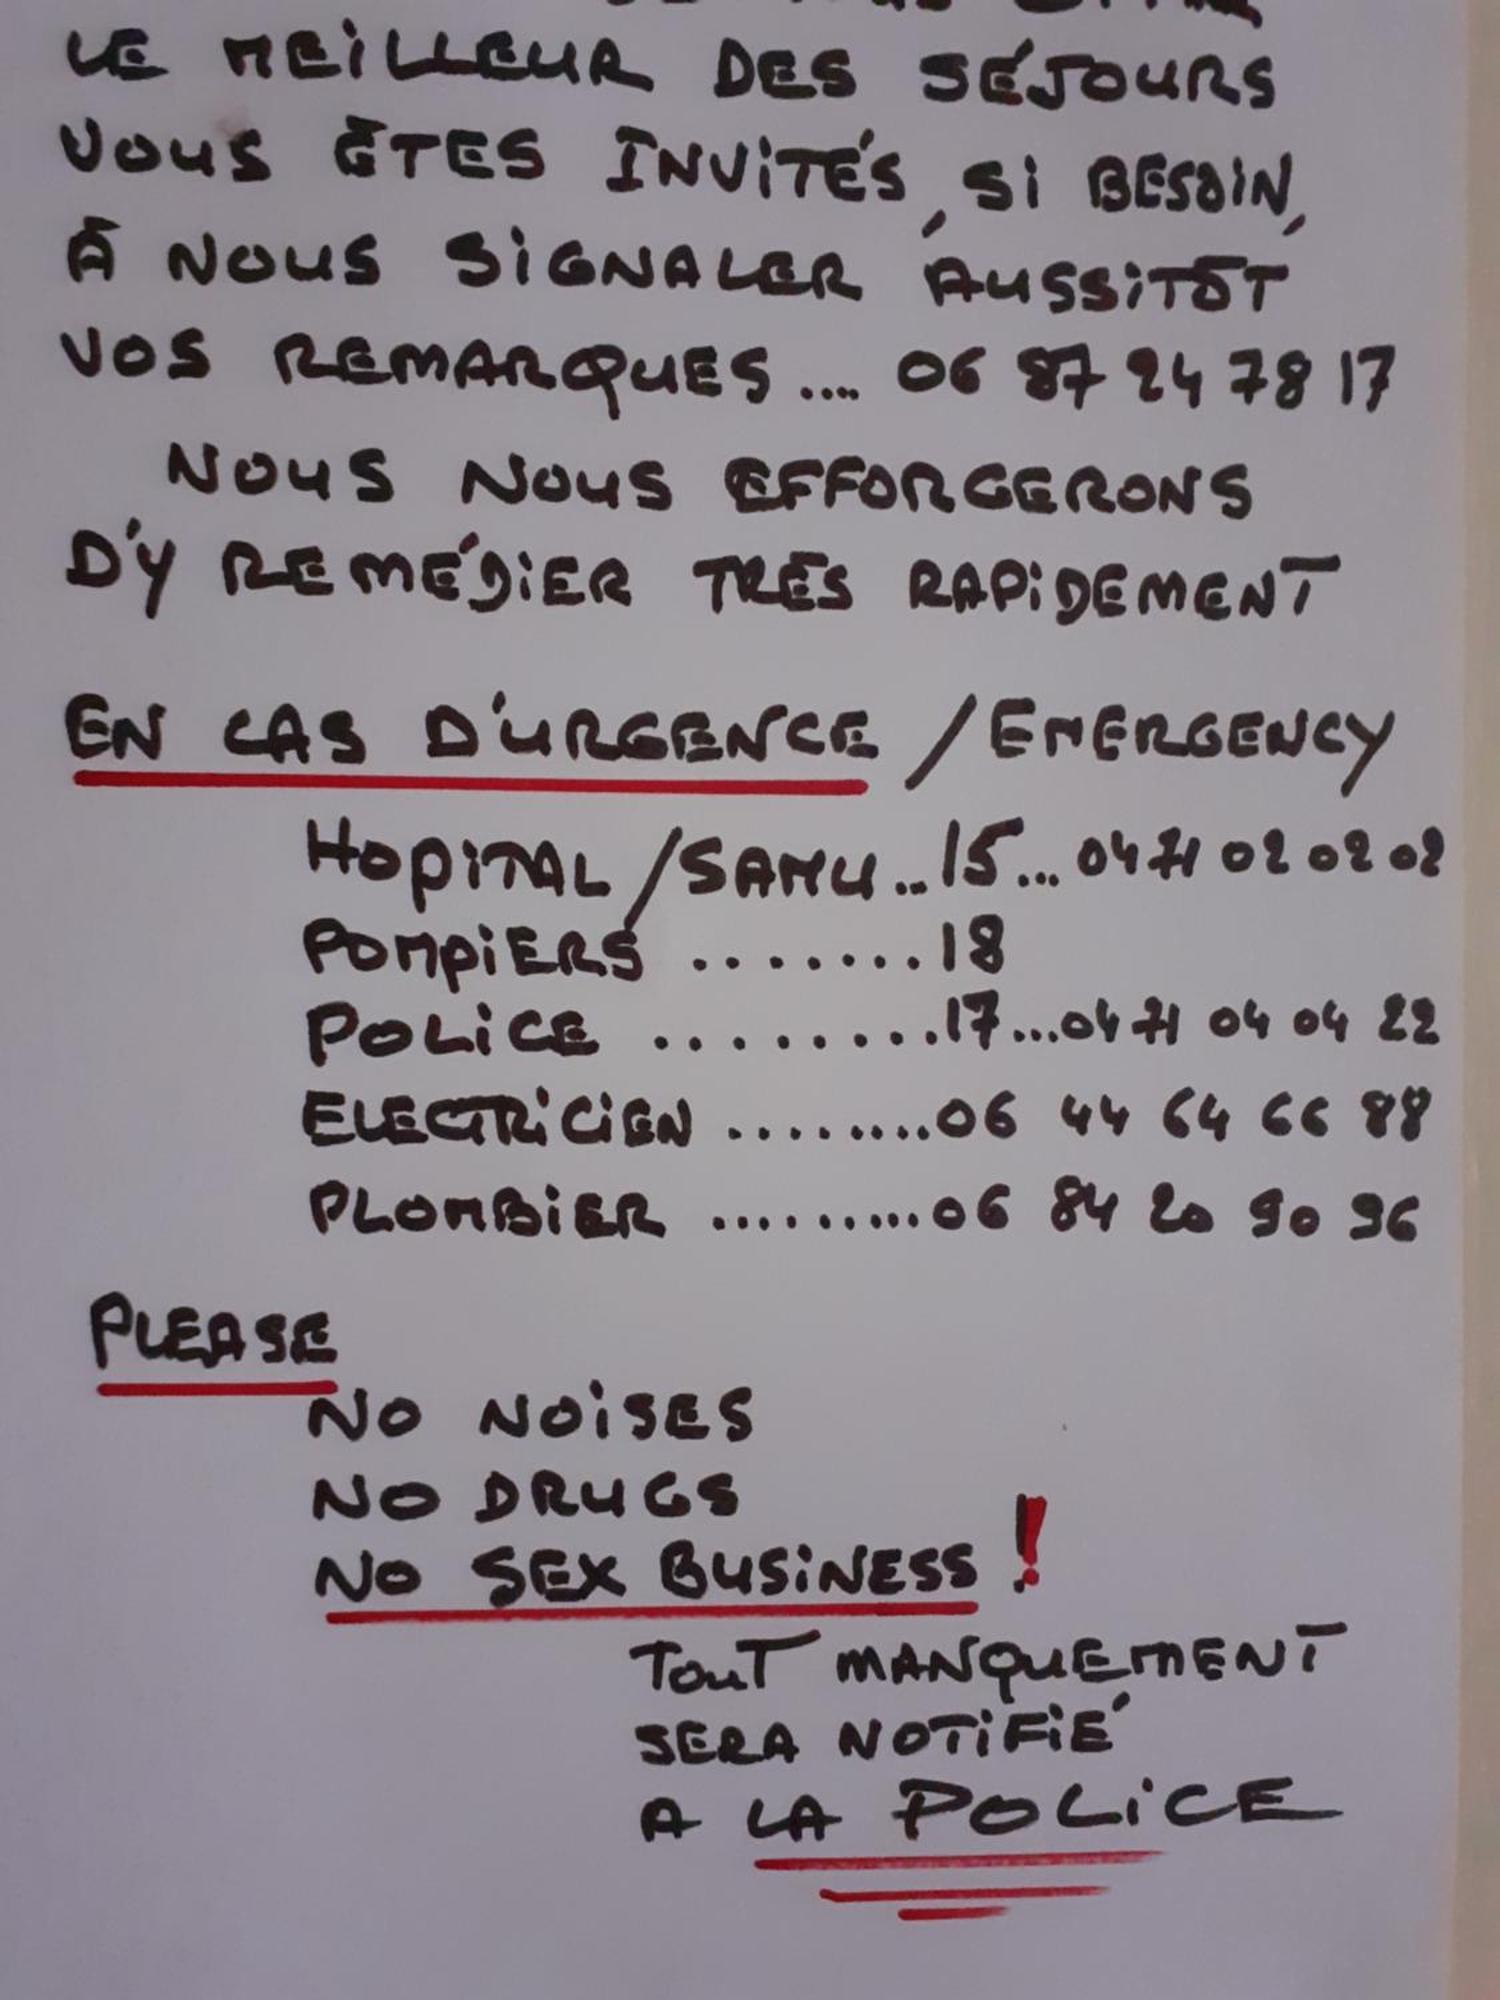 LE MEILLEUR DES SÉJOURS
VOUS ÊTES INVITÉS, SI BESOIN,
À NOUS SIGNALER AUSSITÔT
VOS REMARQUES .... 06 87 24 78 17
NOUS NOUS EFFORCERONS
D'Y REMÉDIER TRÈS RAPIDEMENT
EN CAS D'URGENCE / EMERGENCY
HOPITAL / SAMU ... 15 ... 04 71 02 02 02
POMPIERS ........ 18
POLICE ......... 17 ... 04 71 04 04 22
ELECTRICIEN ......... 06 44 64 66 88
PLOMBIER ......... 06 84 20 90 96
PLEASE
NO NOISES
NO DRUGS
NO SEX BUSINESS !
TOUT MANQUEMENT
SERA NOTIFIÉ
A LA POLICE